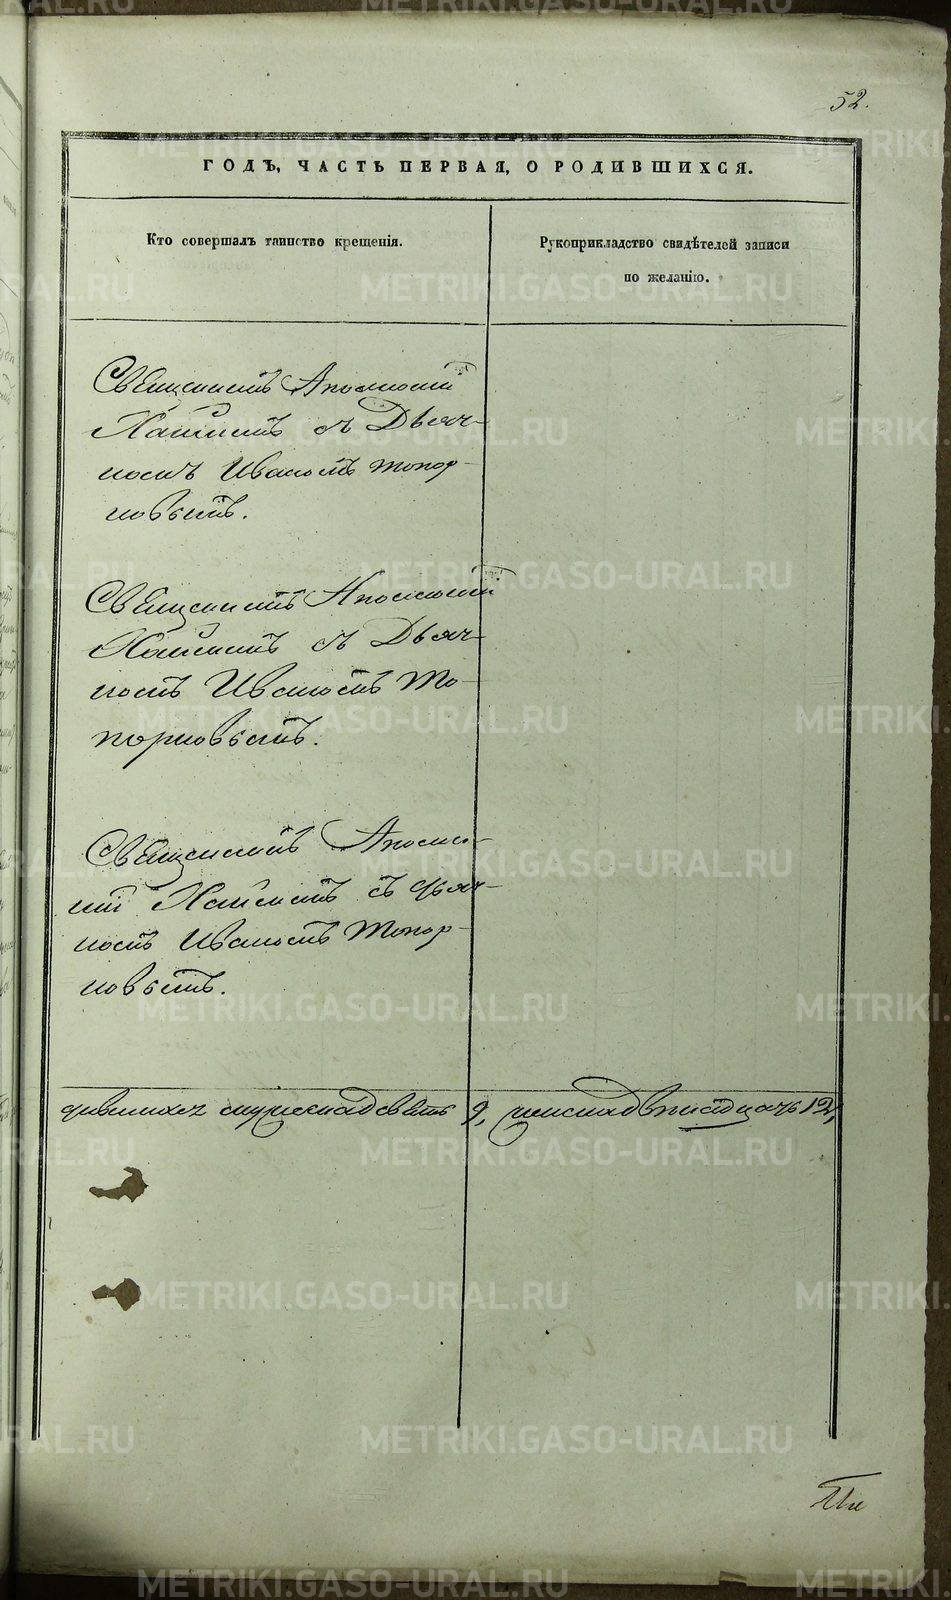 52.
ГОДЪ, ЧАСТЬ ПЕРВАЯ, О РОДИВШИХСЯ.
Кто совершалъ таинство крещенія.
Рукоприкладство свидѣтелей записи
по желанію.
Священникъ Аполлоній
съ Дьяч-
комъ Иваномъ Топор-
ковымъ.
Священникъ Аполлоній
съ Дьяч-
комъ Иваномъ То-
порковымъ.
Священникъ Аполло-
ній съ Дьяч-
комъ Иваномъ Топор-
ковымъ.
девять 9, двѣнадцать 12,
METRIKI.GASO-URAL.RU